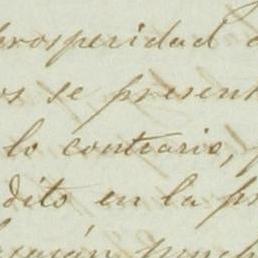 prosperidad
os se present
lo contrario,
dito en la pr